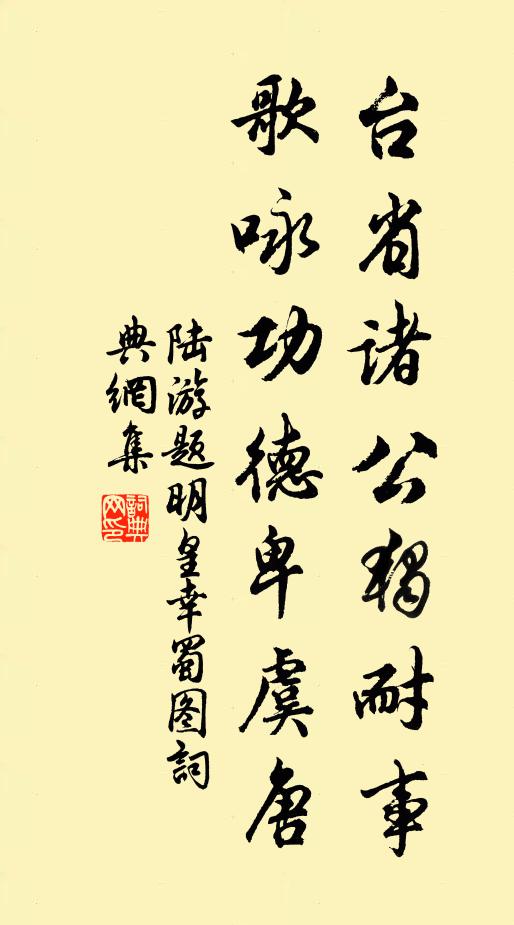 台省诸公独耐事
歌咏功德卑虞唐
陆游题明皇幸蜀图詞
典網集
詞典网印